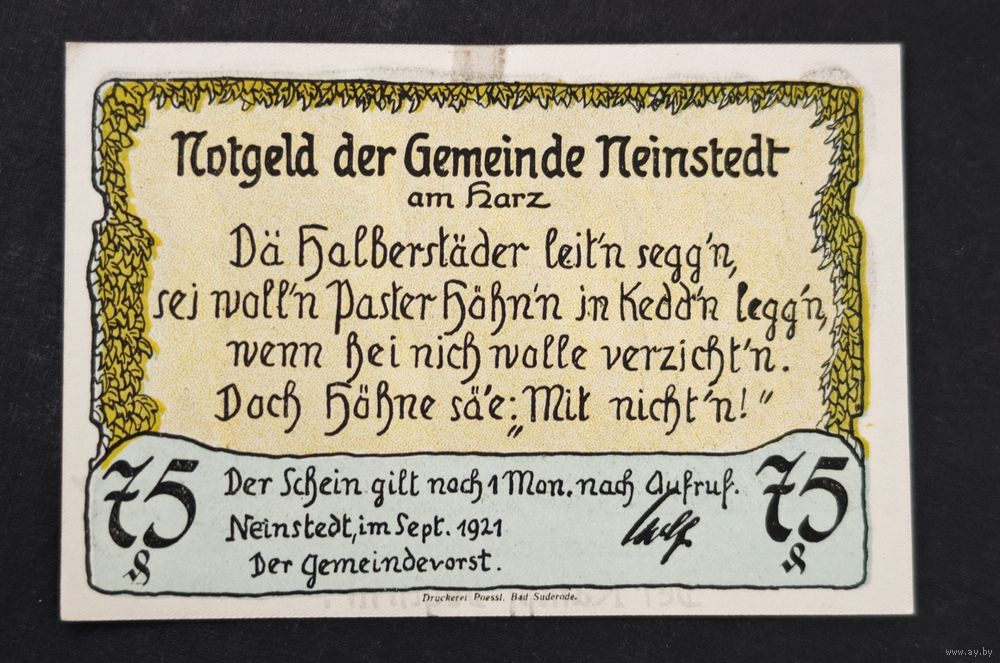 Notgeld der Gemeinde Neinstedt
am Harz
Dä Halberstäder leit'n segg'n,
sei woll'n Paster Höhn'n in Kedd'n legg'n,
wenn hei nich wolle verzicht'n.
Doch Höhne sä'e: „Mit nicht'n!"
75 75
Der Schein gilt noch 1 Mon. nach Aufruf.
Neinstedt, im Sept. 1921
Der Gemeindevorst.
Druckerei Poessl, Bad Suderode.
www.ay.by